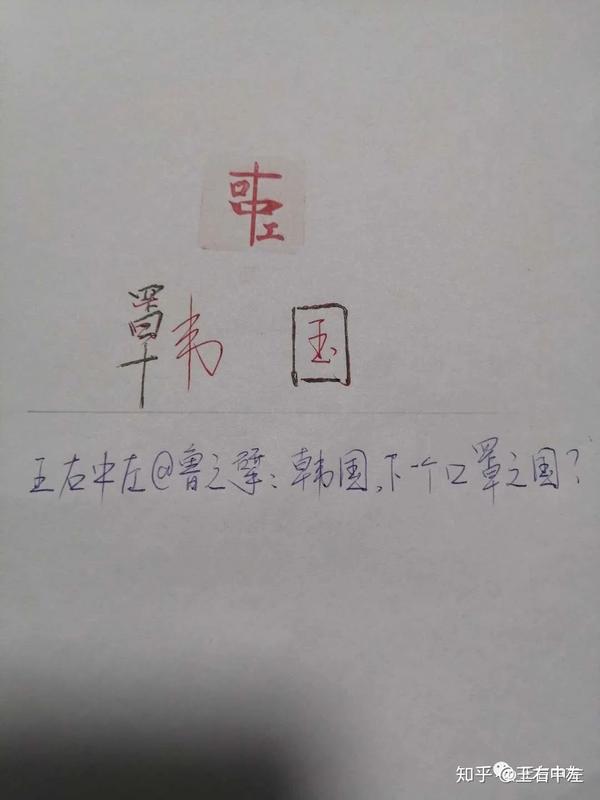 罩韦 国
王右中左@鲁之：韩国，下一个口罩之国？
知乎 @王右中左